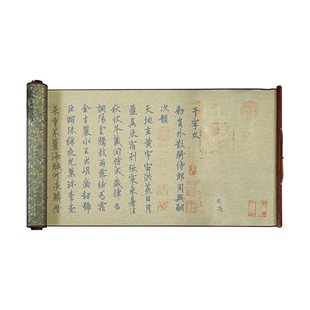 千字文
勑員外散騎侍郎周興嗣
次韻
天地玄黃宇宙洪荒日月
盈昃辰宿列張寒來暑往
秋收冬藏閏餘成歲律呂
調陽雲騰致雨露結為霜
金生麗水玉出崑崗劒號
巨闕珠稱夜光菓珍李柰
菜重芥薑海醎河淡鱗潛